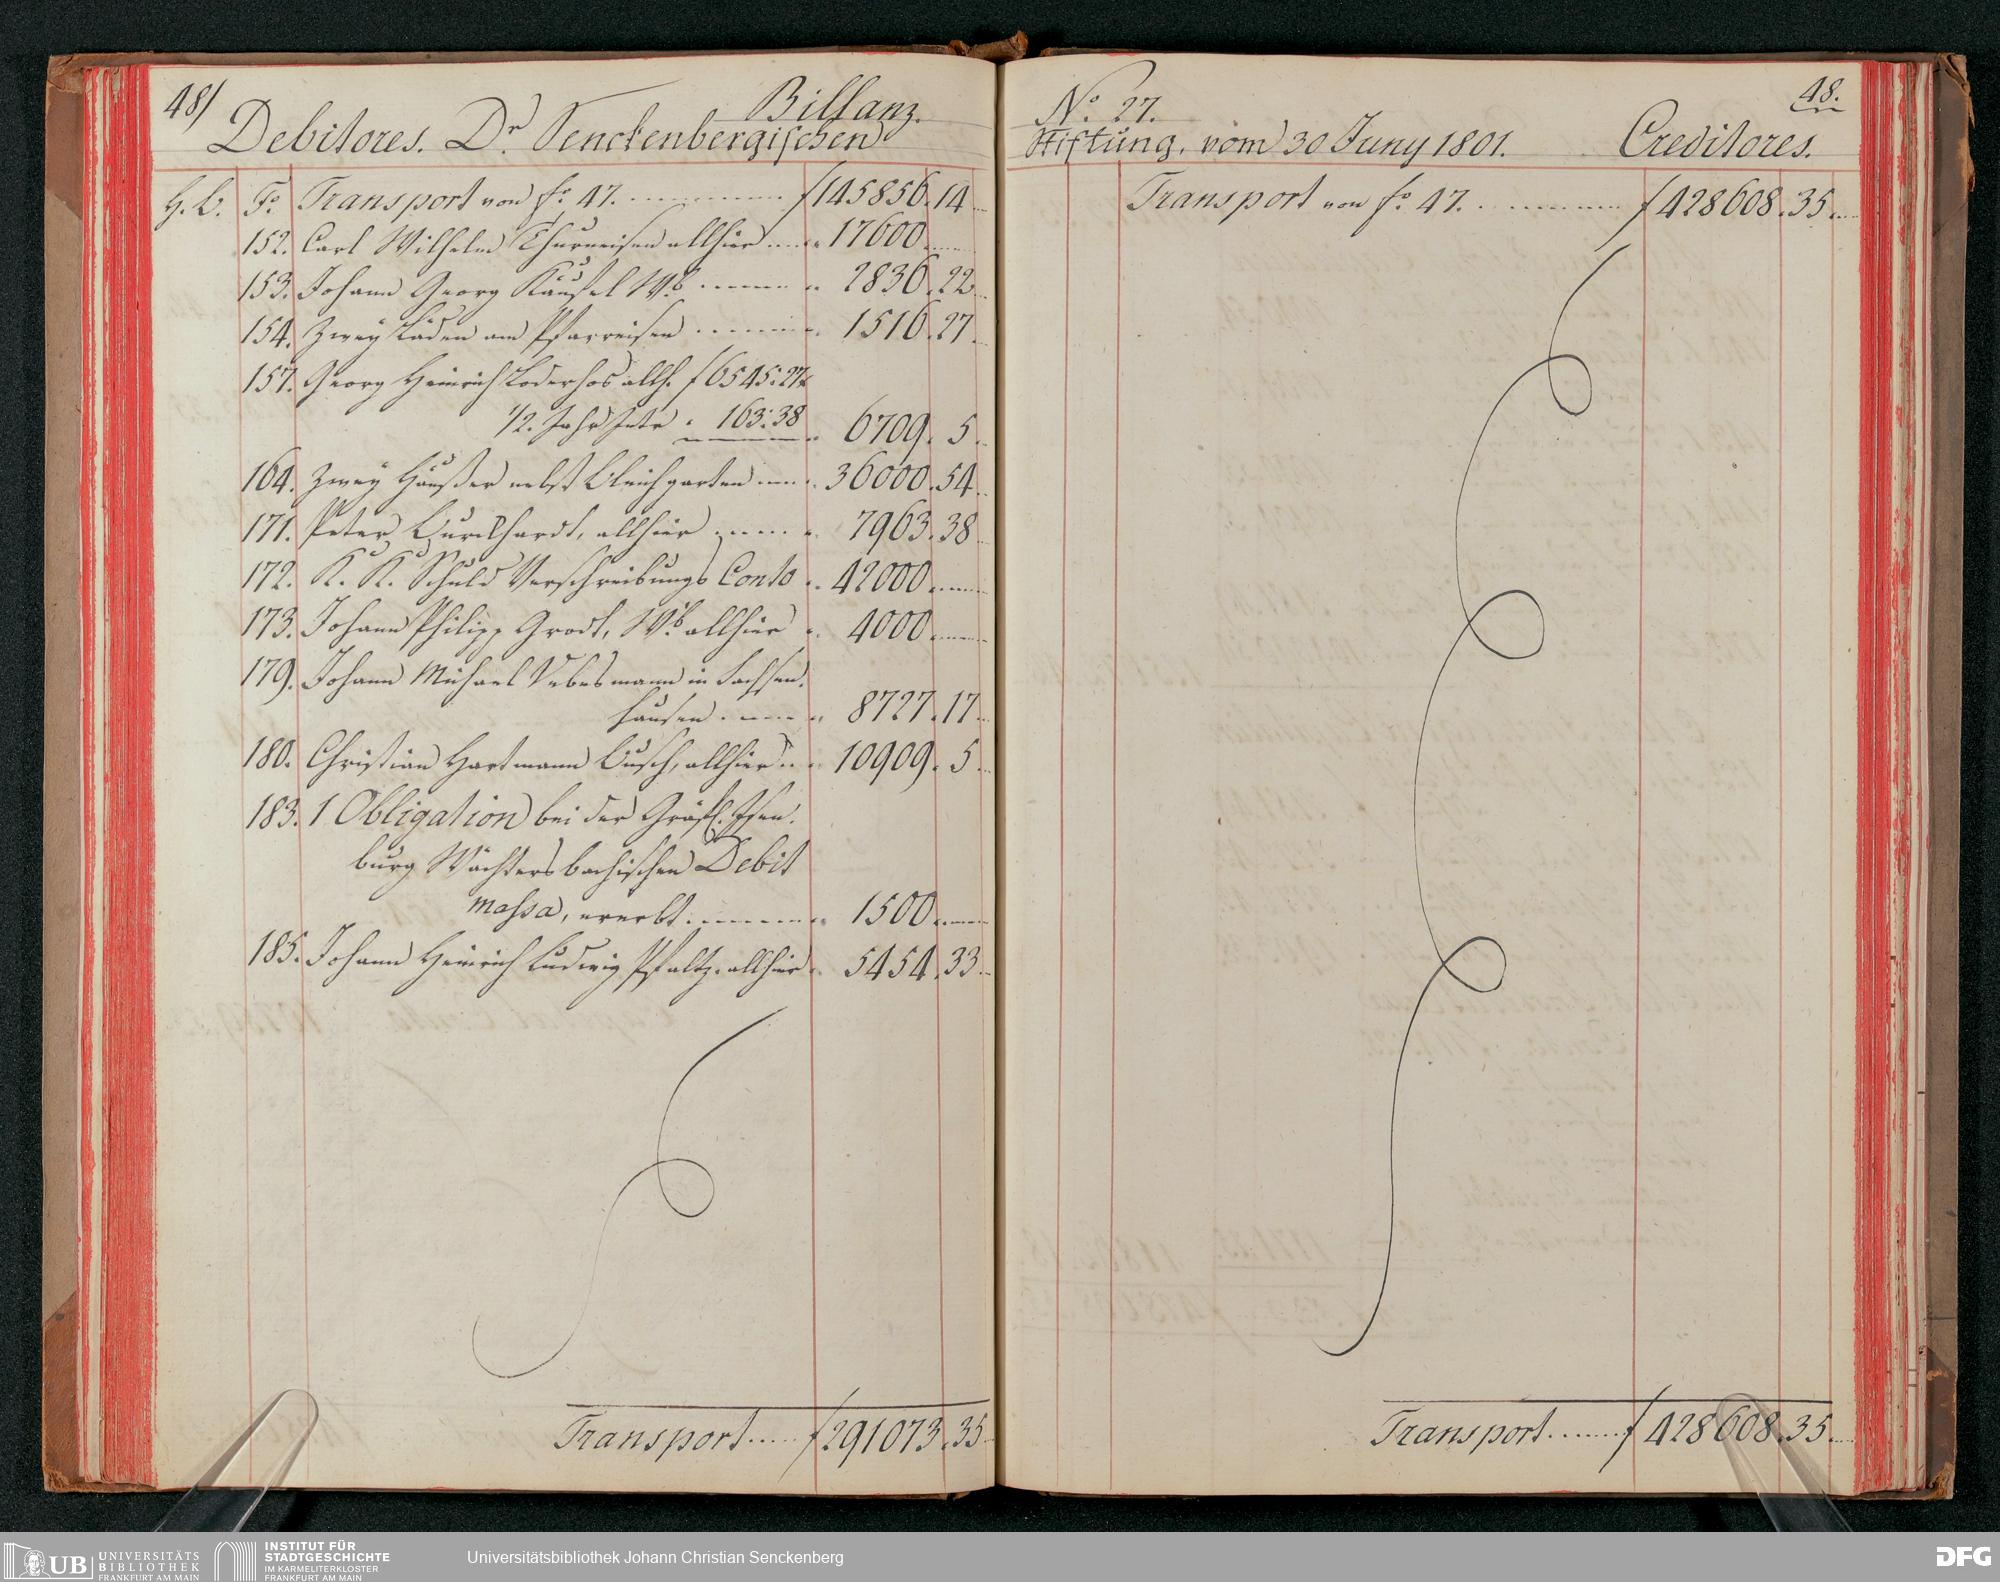 48/
Billanz.
Debitores. Dr. Senckenbergischen
H. B. Fo. Transport von fo. 47. ƒ145856.14
152. Carl Wilhelm Thurneisen allhier 17600.
153. Johann Georg Käussel Wb. 2836.22
154. Zwey Läden am Pfarreisen 1516.27
157. Georg Heinrich Loderhos allh. ƒ6545:27
1/2. Jahr Intr 163:38 6709.5
164. Zwey Häußer nebst Bleichgarten 36000.54
171. Peter Burckhardt, allhier 7963.38
172. K. K. Schuld Verschreibungs Conto 42000
173. Johann Philipp Grodt, Wb. allhier 4000
179. Johann Michael in Sachsen.
hausen. 8727.17
180. Christian Hartmann Busch, allhier 10909.5
183. 1 Obligation bei der Gräfl. Isen.
burg Wächtersbachischen Debit
massa, ererbt. 1500
185. Johann Heinrich Ludwig Pfaltz. allhier 5454.33
Transport ƒ291073.35
48.
No. 27.
Stiftung, vom 30 Juny 1801. Creditores.
Transport von fo. 47. ƒ428608.35
Transport ƒ428608.35
UB UNIVERSITÄTS
BIBLIOTHEK
FRANKFURT AM MAIN
INSTITUT FÜR
STADTGESCHICHTE
IM KARMELITERKLOSTER
FRANKFURT AM MAIN
Universitätsbibliothek Johann Christian Senckenberg
DFG